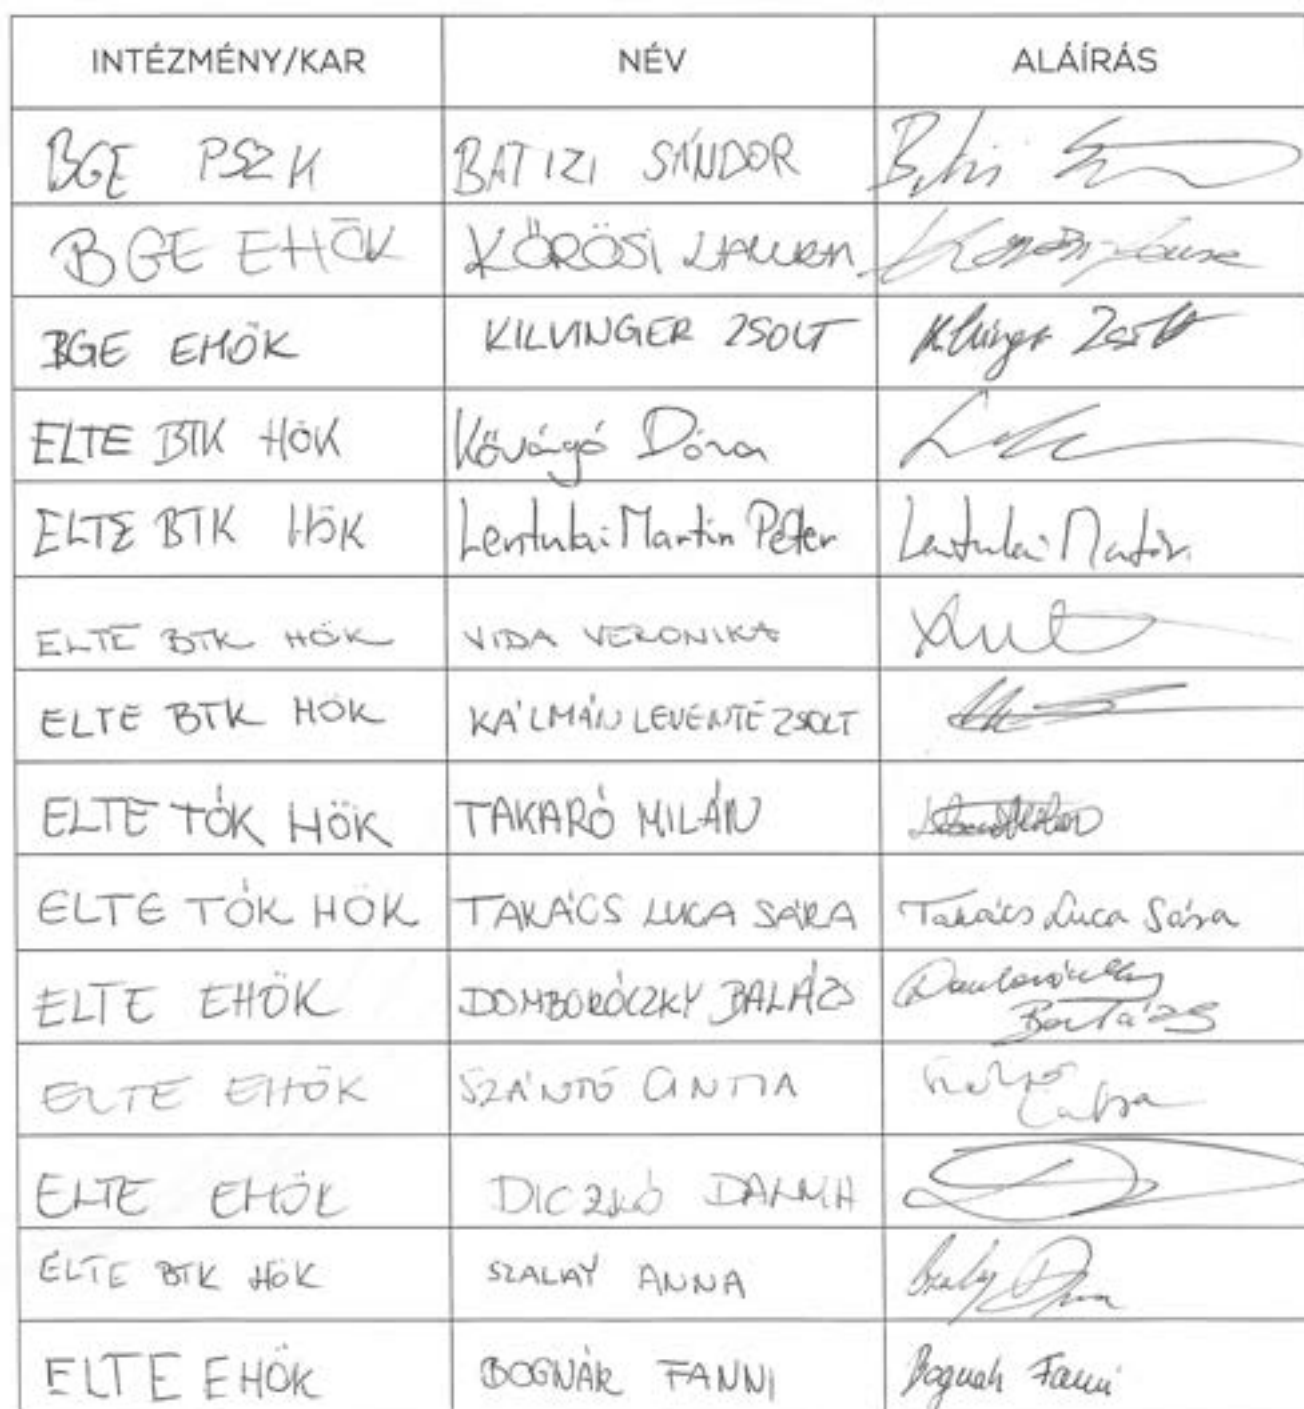 INTÉZMÉNY/KAR NÉV ALÁÍRÁS
BGE PSZK BATIZI SÁNDOR
BGE EHÖK KŐRÖSI LAURA
BGE EHÖK KILVINGER ZSOLT Kilvinger Zsolt
ELTE BTK HÖK Kővágó Dóra
ELTE BTK HÖK Lentulai Martin Péter Lentulai Martin
ELTE BTK HÖK VIDA VERONIKA
ELTE BTK HÖK KÁLMÁN LEVENTE ZSOLT
ELTE TÓK HÖK TAKARÓ MILÁN
ELTE TÓK HÖK TAKÁCS LUCA SÁRA Takács Luca Sára
ELTE EHÖK DOMBORÓCZKY BALÁZS Domboróczky
Balázs
ELTE EHÖK SZÁNTÓ CINTIA
ELTE EHÖK DICZKÓ
ELTE BTK HÖK SZALAY ANNA Szalay Anna
ELTE EHÖK BOGNÁR FANNI Bognár Fanni